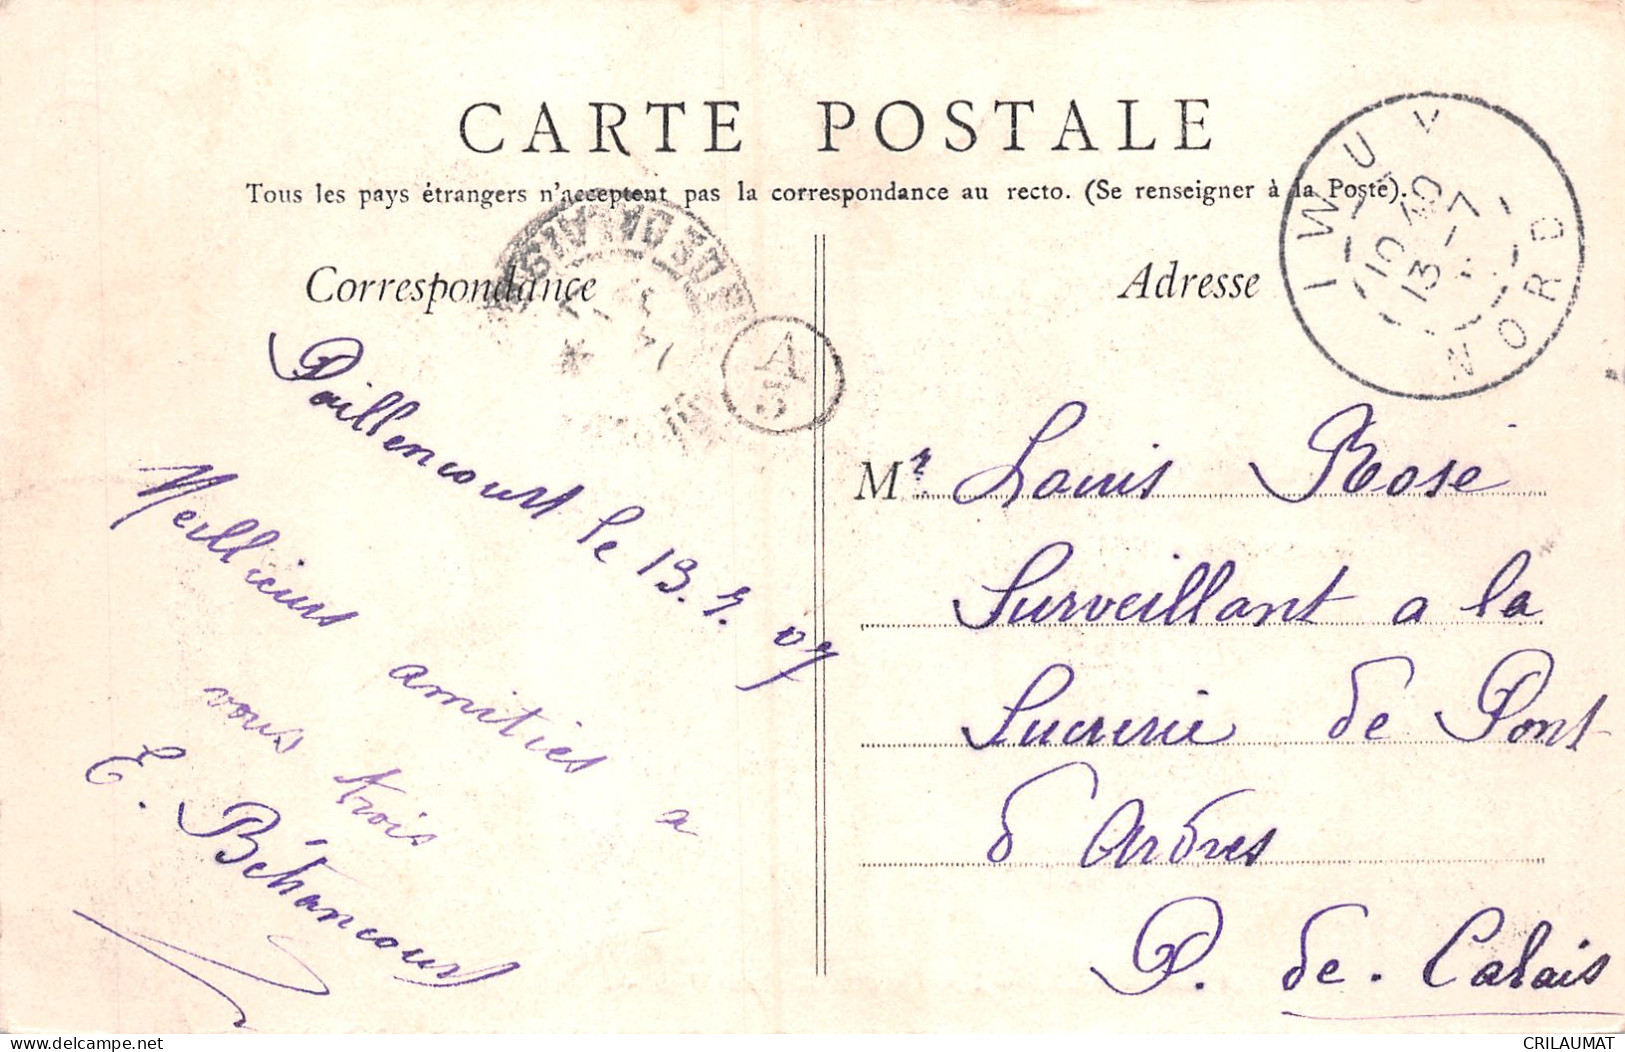 CARTE POSTALE
Tous les pays étrangers n'acceptent pas la correspondance au recto. (Se renseigner à la Poste).
Correspondance
Adresse
IWUY
10 40
13 -7
NORD
A
3
Paillencourt le 13.7.07
Meilleurs amitiés a
vous trois
E. Béthancourt
Mr Louis Rose
Surveillant a la
Sucrerie de Pont
d Ardres
P. de. Calais
CRILAUMAT